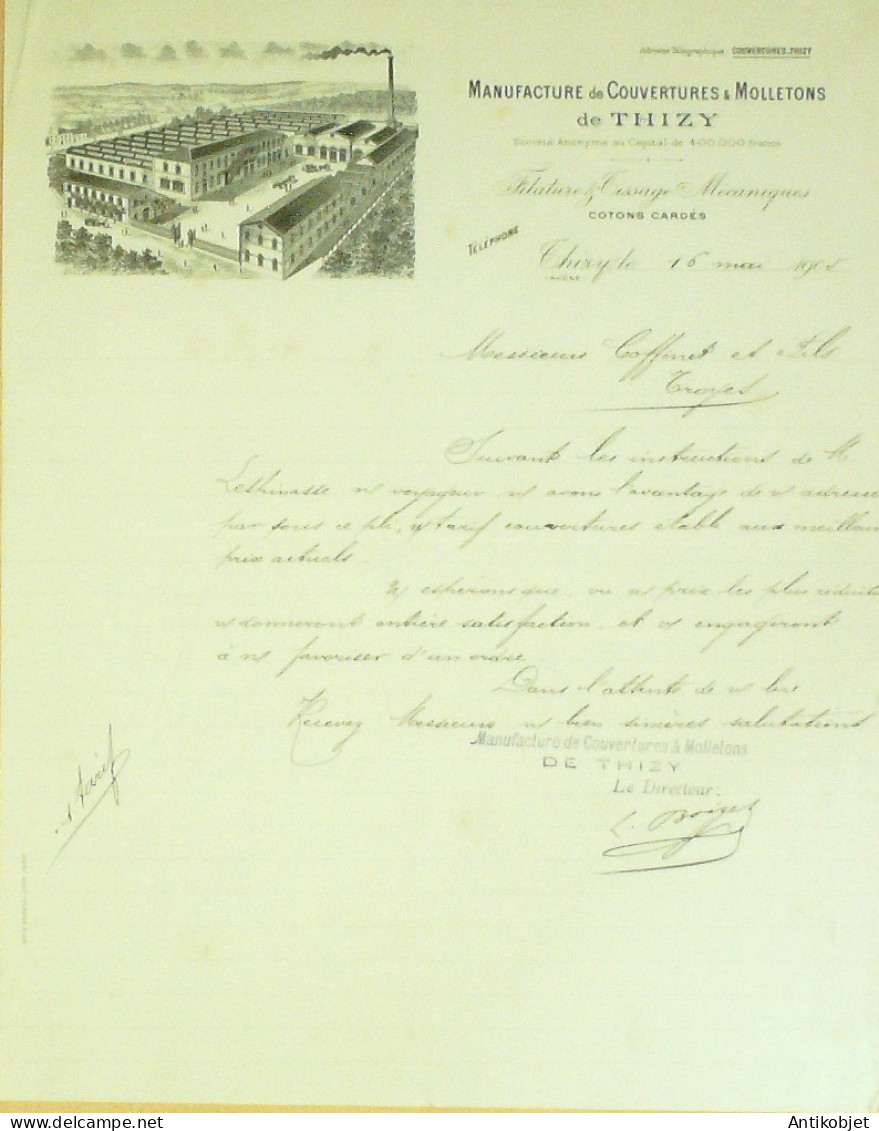 Adresse Télégraphique: COUVERTURES-THIZY
MANUFACTURE de COUVERTURES & MOLLETONS
de THIZY
Société Anonyme au Capital de 400.000 francs
Filature & Tissage Mécaniques
COTONS CARDÉS
TÉLÉPHONE
Thizy, le 16 mai 190
Messieurs Coffinet et Fils
Troyes
Suivant les instructions de M
Lespinasse n/ voyageur, n/ avons l'avantage de v/ adresser
par sous ce pli, n/ tarif couvertures établi aux meilleurs
prix actuels.
N/ espérons que, vu n/ prix les plus réduits
v/ donneront entière satisfaction, et v/ engageront
à n/ favoriser d'un ordre.
Dans l'attente de v/ lire
Recevez Messieurs n/ bien sincères salutations
Manufacture de Couvertures & Molletons
DE THIZY
Le Directeur:
1 tarif
www.delcampe.net
Antikobjet